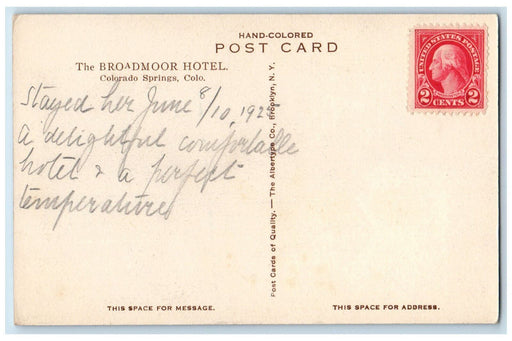 HAND-COLORED
POST CARD
The BROADMOOR HOTEL.
Colorado Springs, Colo.
UNITED STATES POSTAGE
2 CENTS 2
Stayed her June 8/10, 192
a delightful comfortable
hotel & a perfect
temperatures
Post Cards of Quality. — The Albertype Co., Brooklyn, N. Y.
THIS SPACE FOR MESSAGE.
THIS SPACE FOR ADDRESS.